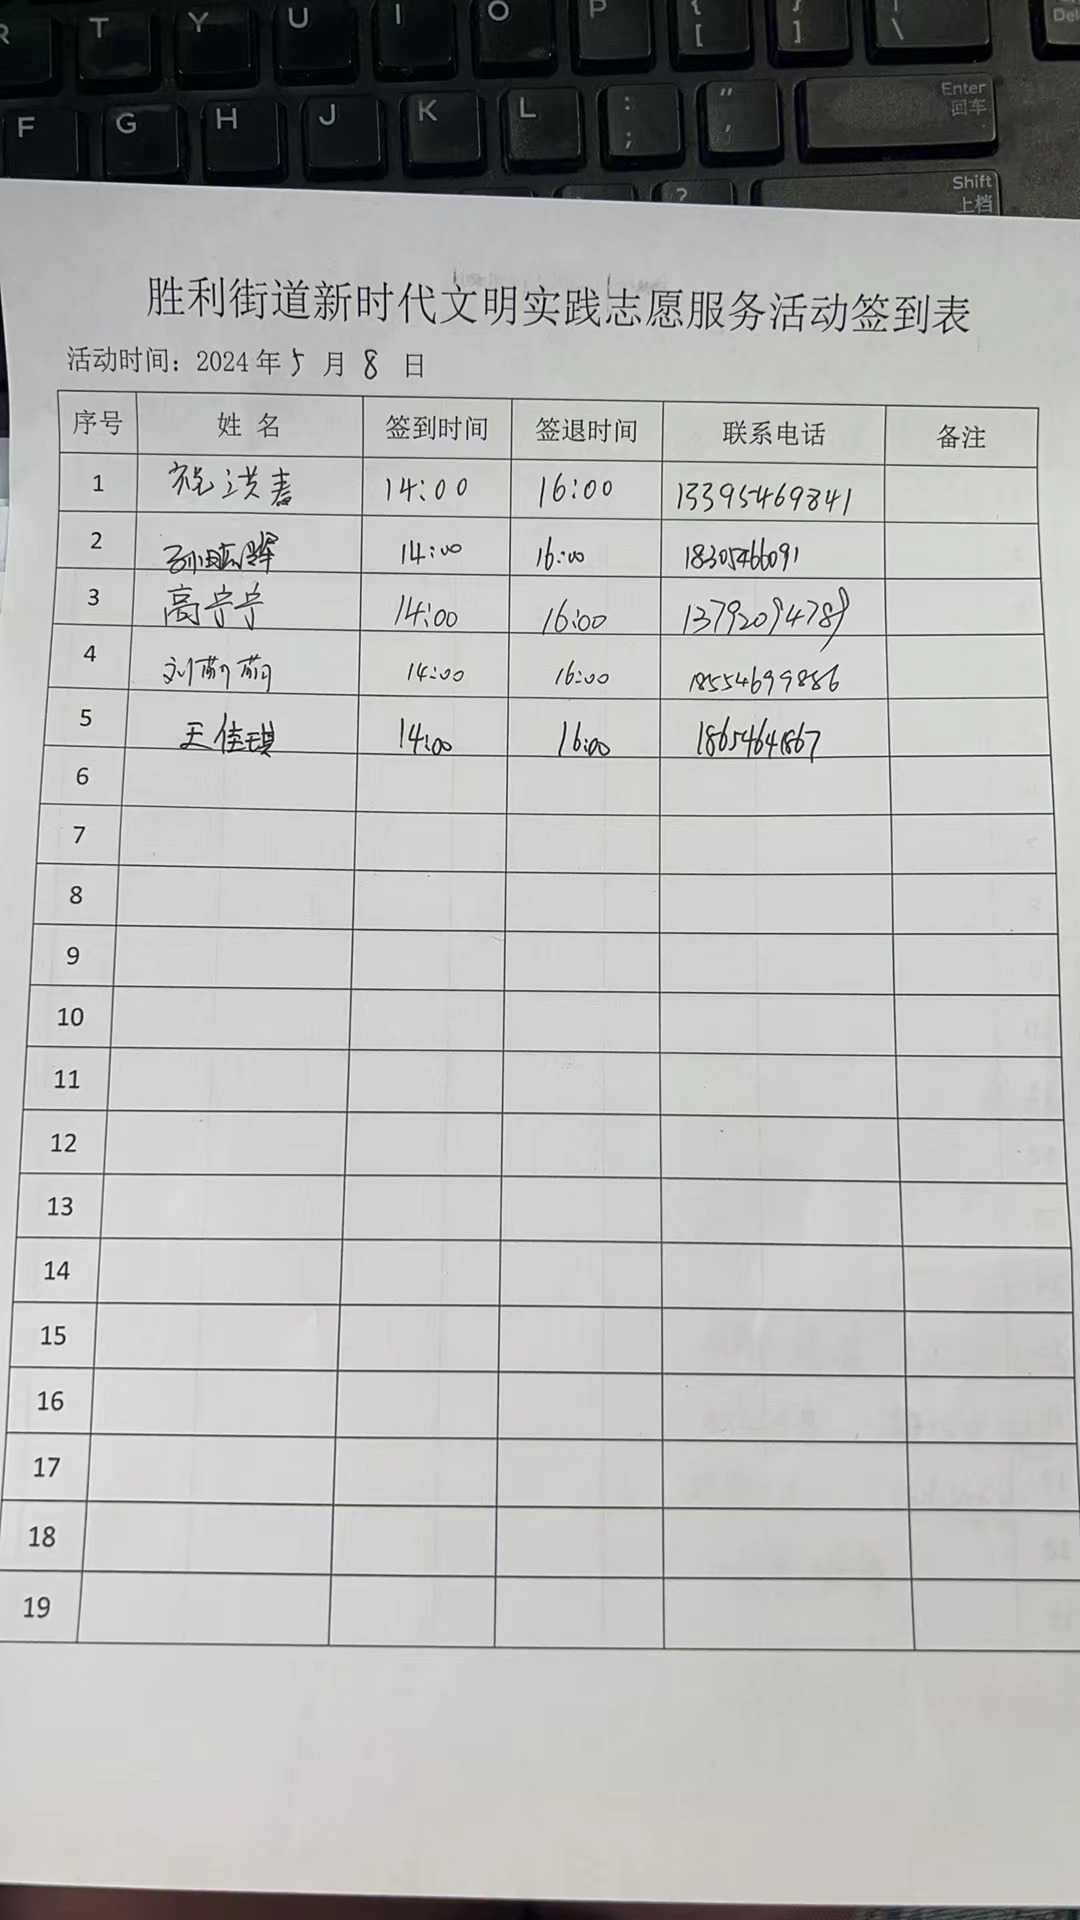 R T Y U I O P { [ } ] | \ Del
F G H J K L : ; " ' Enter 回车
? Shift 上档
胜利街道新时代文明实践志愿服务活动签到表
活动时间：2024年5月8日
序号 姓名 签到时间 签退时间 联系电话 备注
1 14:00 16:00 13395469841
2 14:00 16:00 18305466091
3 高宁宁 14:00 16:00 13792094789
4 刘萌萌 14:00 16:00 18554699886
5 王佳琪 14:00 16:00 1865464867
6
7
8
9
10
11
12
13
14
15
16
17
18
19